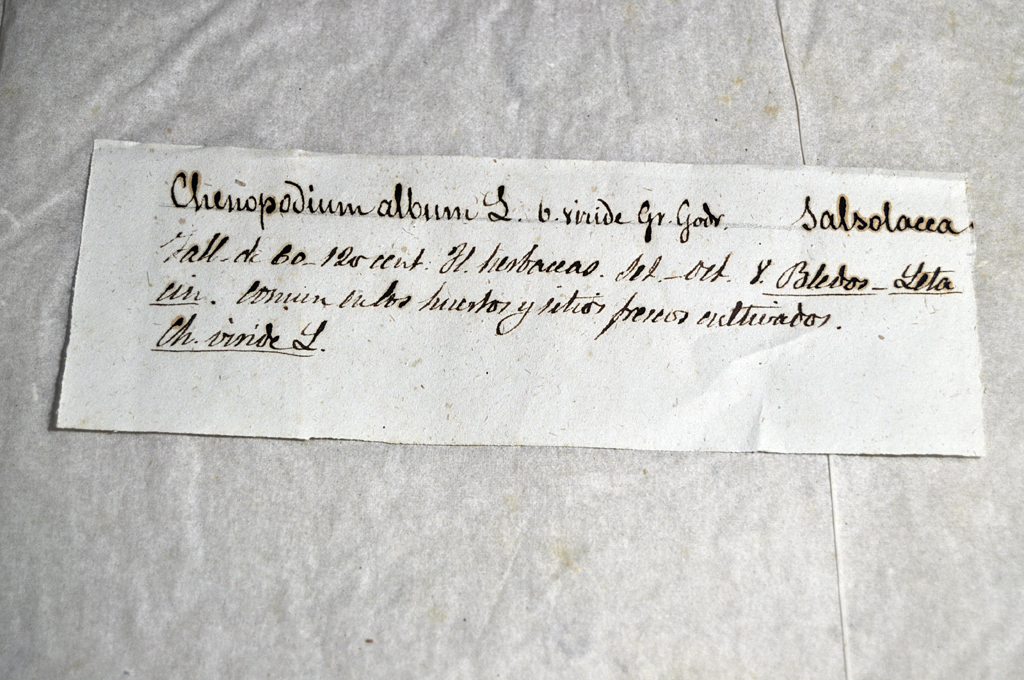 Chenopodium album L. b. viride Gr. Godr. Salsolacea
Tall. de 60-120 cent. Fl. herbaceas. Set-Oct. V. Bledos-Leta
cin. Comun en los huertos y sitios frescos cultivados.
Ch. viride L.